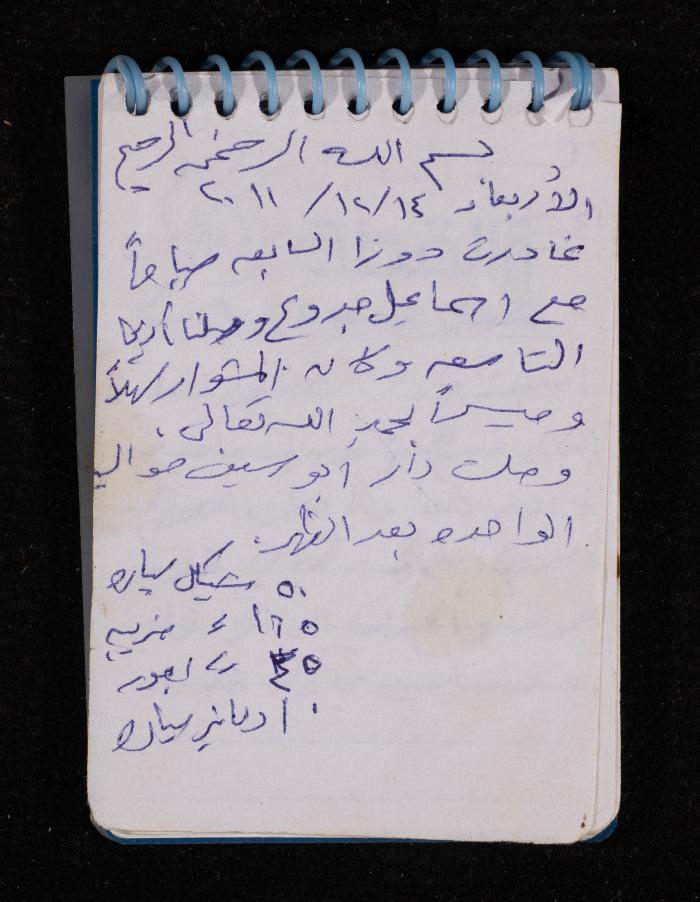 بسم الله الرحمن الرحيم
الأربعاء ١٤/١٢/٢٠١١
غادرت دورا السابعه صباحاً
مع اسماعيل جدوع ووصلنا أريحا
التاسعه وكان المشوار سهلاً
وميسراً لحمد الله تعالى.
وصلت دار أبو سيف حوالي
الواحده بعد الظهر.
٥٠ شيكل سياره
١٦٥ ء ضريبه
٤٥ ء لعبور
١٠ دنانير سياره